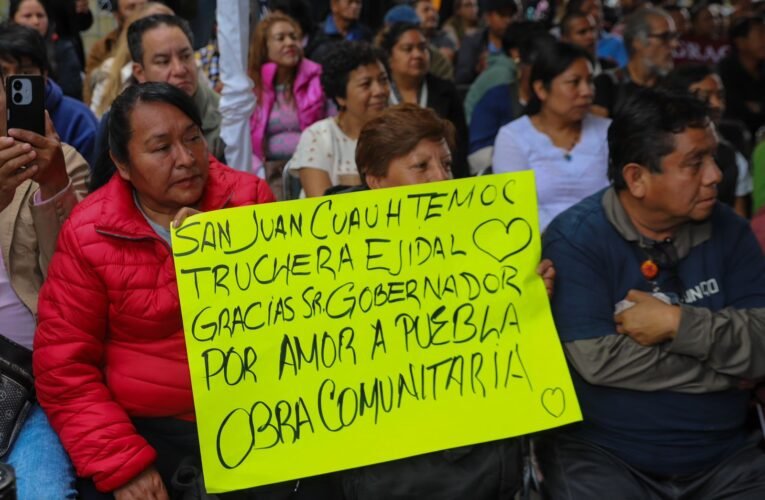 SAN JUAN CUAUHTEMOC
TRUCHERA EJIDAL
GRACIAS SR. GOBERNADOR
POR AMOR A PUEBLA
OBRA COMUNITARIA